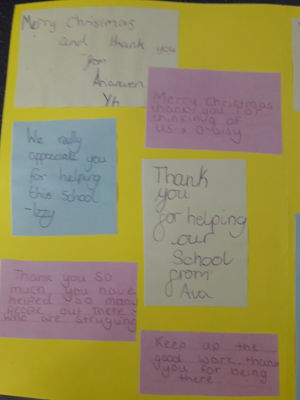 Merry Christmas
and thank you
from
Y4
Merry Christmas
thank you for
thinking of
us :) Daisy
We really
appreciate you
for helping
this school
-Izzy
Thank
you
for helping
our
School
from
Ava
Thank you so
much you have
helped so many
people out there
who are struguing
Keep up the
good work. thank
you for being
there